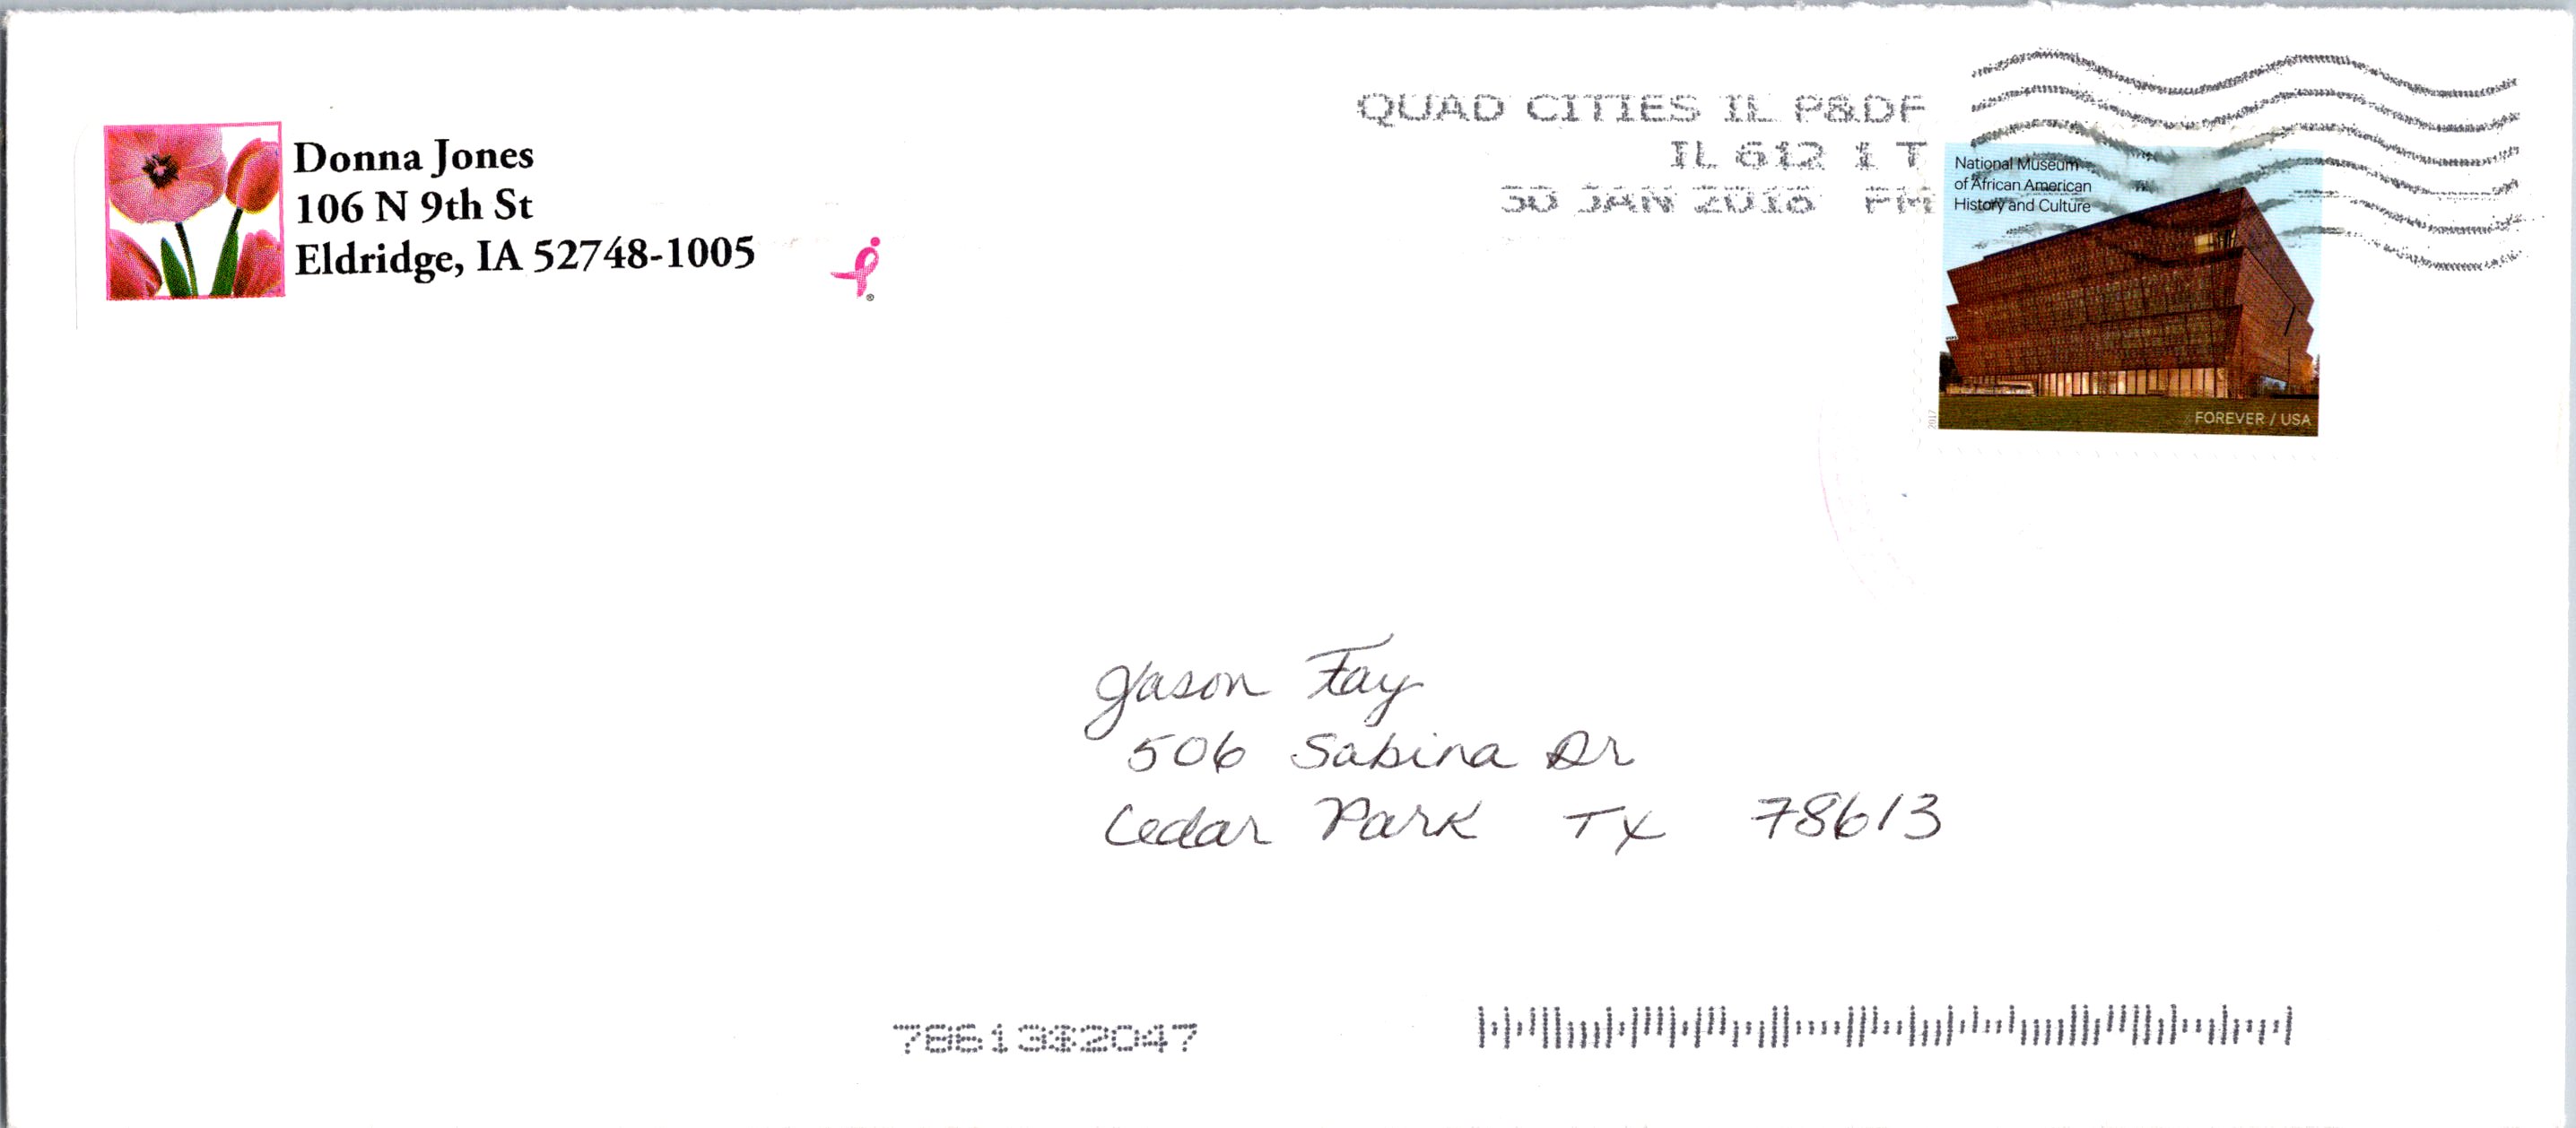 Donna Jones
106 N 9th St
Eldridge, IA 52748-1005
®
QUAD CITIES IL P&DF
IL 612 1 T
30 JAN 2018 PM
National Museum
of African American
History and Culture
FOREVER / USA
2017
Jason Fay
506 Sabina Dr
Cedar Park TX 78613
78613$2047